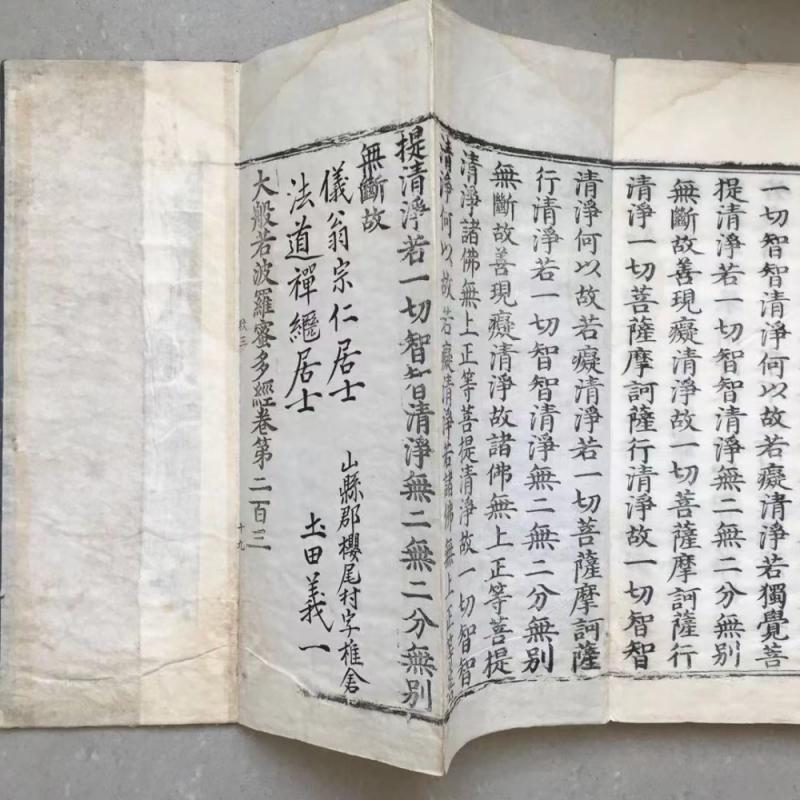 一切智智清淨何以故若癡清淨若獨覺菩
提清淨若一切智智清淨無二無二分無別
無斷故善現癡清淨故一切菩薩摩訶薩行
清淨一切菩薩摩訶薩行清淨故一切智智
清淨何以故若癡清淨若一切菩薩摩訶薩
行清淨若一切智智清淨無二無二分無別
無斷故善現癡清淨故諸佛無上正等菩提
清淨諸佛無上正等菩提清淨故一切智智
清淨何以故若癡清淨若諸佛無上正等菩
提清淨若一切智智清淨無二無二分無別
無斷故
儀翁宗仁居士
法道禪繼居士
山縣郡櫻尾村字椎倉
土田義一
大般若波羅蜜多經卷第二百三
秋三
十九